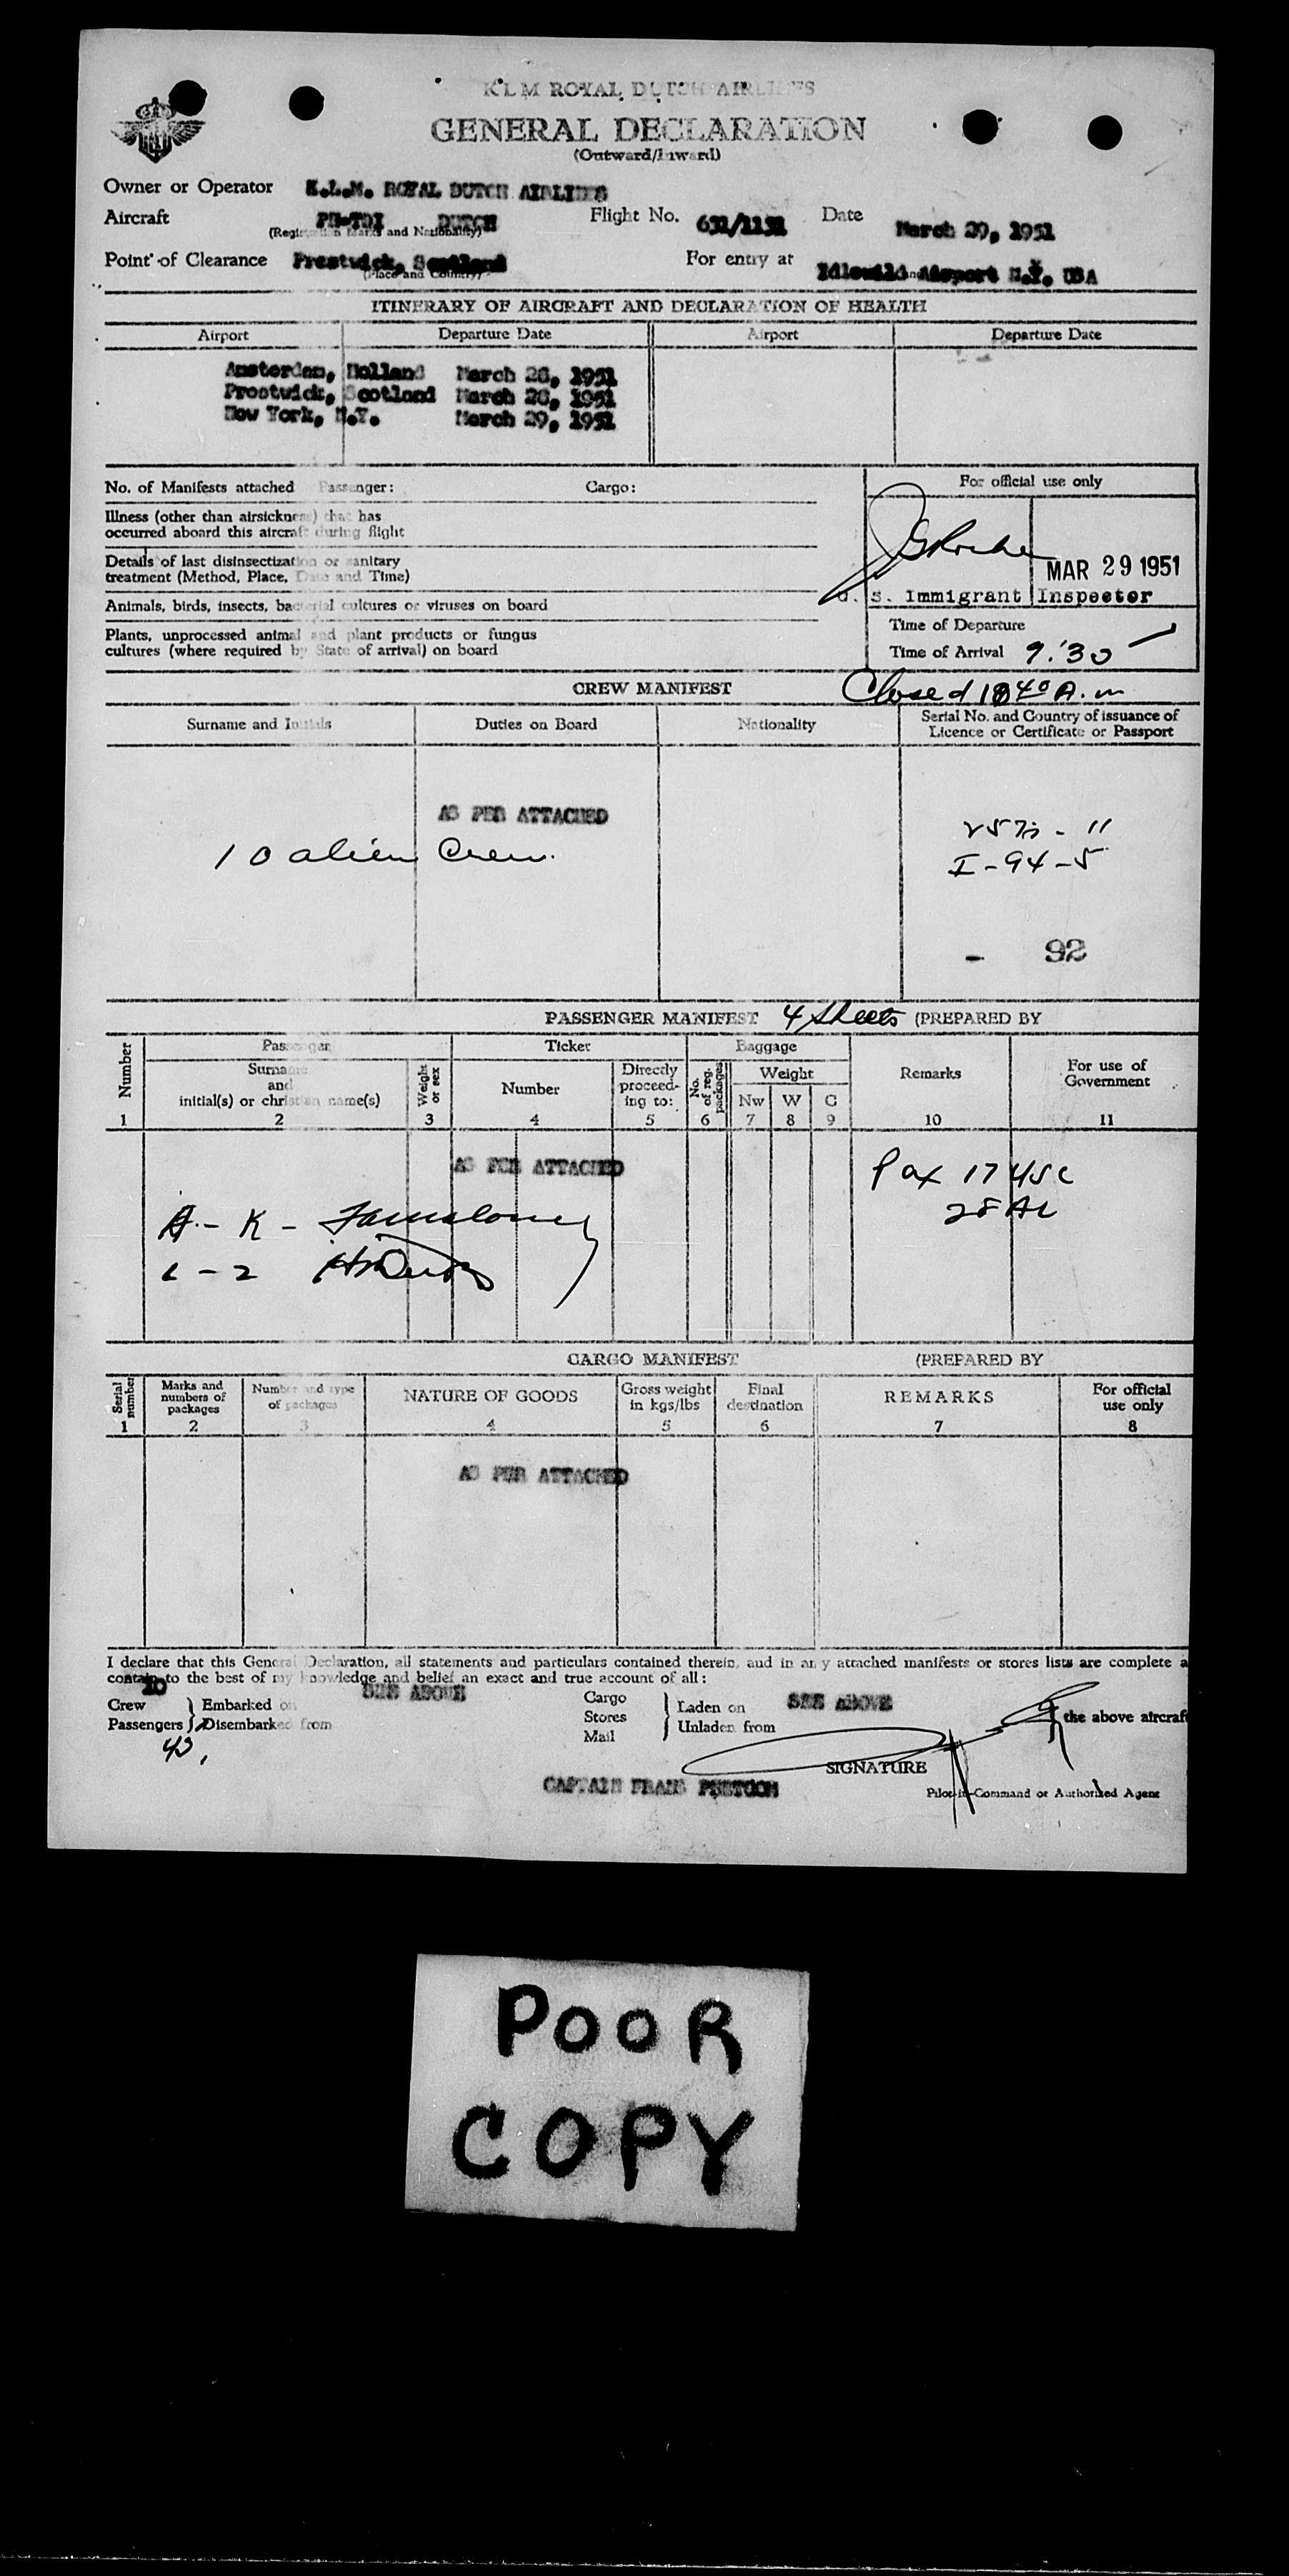 KLM ROYAL DUTCH AIRLINES
GENERAL DECLARATION
(Outward/Inward)
Owner or Operator K.L.M. ROYAL DUTCH AIRLINES
Aircraft PH-TDI DUTCH Flight No. 631/1131 Date March 29, 1951
(Registration Marks and Nationality)
Point of Clearance Prestwick, Scotland For entry at Idlewild Airport N.Y. USA
(Place and Country)
ITINERARY OF AIRCRAFT AND DECLARATION OF HEALTH
Airport Departure Date Airport Departure Date
Amsterdam, Holland March 28, 1951
Prestwick, Scotland March 28, 1951
New York, N.Y. March 29, 1951
No. of Manifests attached Passenger: Cargo: For official use only
Illness (other than airsickness) that has
occurred aboard this aircraft during flight
Details of last disinsectization or sanitary
treatment (Method, Place, Date and Time)
MAR 29 1951
U. S. Immigrant Inspector
Animals, birds, insects, bacterial cultures or viruses on board
Plants, unprocessed animal and plant products or fungus
cultures (where required by State of arrival) on board
Time of Departure
Time of Arrival 9:30
CREW MANIFEST Closed 10 40 A.m
Surname and Initials Duties on Board Nationality Serial No. and Country of issuance of
Licence or Certificate or Passport
AS PER ATTACHED
10 alien Crew.
I-94-5
- 92
PASSENGER MANIFEST 4 sheets (PREPARED BY
Number Passenger Ticket Baggage Remarks For use of
Government
Surname
and
initial(s) or christian name(s)
Weight
or sex
Number
Directly
proceed-
ing to:
No.
of reg.
packages
Weight
Nw W C
1 2 3 4 5 6 7 8 9 10 11
AS PER ATTACHED
Pax 17 USC
28 AL
A - K -
L - Z
CARGO MANIFEST (PREPARED BY
Serial
number
Marks and
numbers of
packages
Number and type
of packages
NATURE OF GOODS
Gross weight
in kgs/lbs
Final
destination
REMARKS
For official
use only
1 2 3 4 5 6 7 8
AS PER ATTACHED
I declare that this General Declaration, all statements and particulars contained therein, and in any attached manifests or stores lists are complete a
contain to the best of my knowledge and belief an exact and true account of all:
10
Crew Embarked on SEE ABOVE
Passengers Disembarked from
Cargo
Stores
Mail
Laden on SEE ABOVE
Unladen from
the above aircraft
SIGNATURE
CAPTAIN FRANS
Pilot-in-Command or Authorized Agent
POOR
COPY